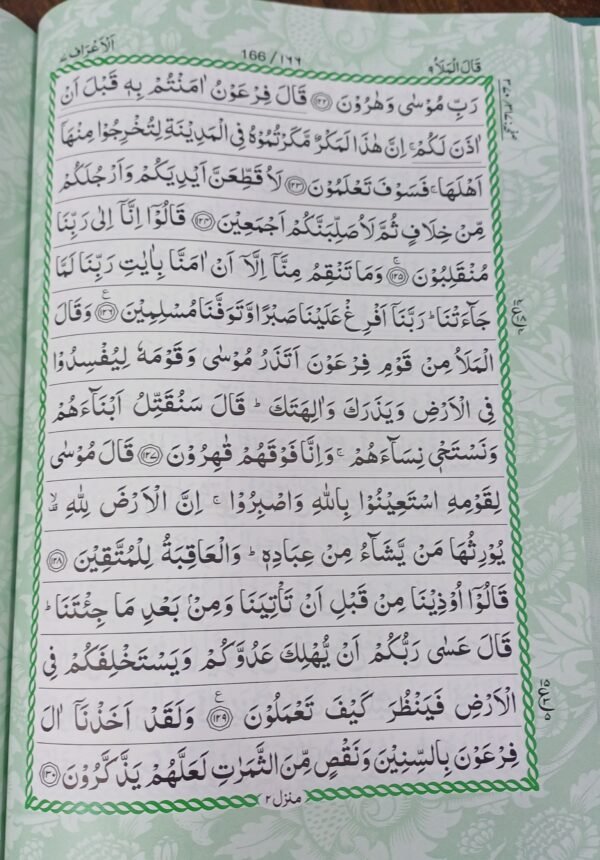 قَالَ الْمَلَاُ ٩
166 / ١٦٦
اَلْاَعْرَاف ٧
رَبِّ مُوْسٰى وَهٰرُوْنَ ﴿١٢٢﴾ قَالَ فِرْعَوْنُ اٰمَنْتُمْ بِهٖ قَبْلَ اَنْ
اٰذَنَ لَكُمْ ۚ اِنَّ هٰذَا لَمَكْرٌ مَّكَرْتُمُوْهُ فِى الْمَدِيْنَةِ لِتُخْرِجُوْا مِنْهَاۤ
اَهْلَهَا ۚ فَسَوْفَ تَعْلَمُوْنَ ﴿١٢٣﴾ لَاُقَطِّعَنَّ اَيْدِيَكُمْ وَاَرْجُلَكُمْ
مِّنْ خِلَافٍ ثُمَّ لَاُصَلِّبَنَّكُمْ اَجْمَعِيْنَ ﴿١٢٤﴾ قَالُوْۤا اِنَّاۤ اِلٰى رَبِّنَا
مُنْقَلِبُوْنَ ﴿١٢٥﴾ وَمَا تَنْقِمُ مِنَّاۤ اِلَّاۤ اَنْ اٰمَنَّا بِاٰيٰتِ رَبِّنَا لَمَّا
جَآءَتْنَا ؕ رَبَّنَاۤ اَفْرِغْ عَلَيْنَا صَبْرًا وَّتَوَفَّنَا مُسْلِمِيْنَ ﴿١٢٦﴾ وَقَالَ
الْمَلَاُ مِنْ قَوْمِ فِرْعَوْنَ اَتَذَرُ مُوْسٰى وَقَوْمَهٗ لِيُفْسِدُوْا
فِى الْاَرْضِ وَيَذَرَكَ وَاٰلِهَتَكَ ؕ قَالَ سَنُقَتِّلُ اَبْنَآءَهُمْ
وَنَسْتَحْىٖ نِسَآءَهُمْ ۚ وَاِنَّا فَوْقَهُمْ قٰهِرُوْنَ ﴿١٢٧﴾ قَالَ مُوْسٰى
لِقَوْمِهِ اسْتَعِيْنُوْا بِاللّٰهِ وَاصْبِرُوْا ۚ اِنَّ الْاَرْضَ لِلّٰهِ ۙ
يُوْرِثُهَا مَنْ يَّشَآءُ مِنْ عِبَادِهٖ ؕ وَالْعَاقِبَةُ لِلْمُتَّقِيْنَ ﴿١٢٨﴾
قَالُوْۤا اُوْذِيْنَا مِنْ قَبْلِ اَنْ تَاْتِيَنَا وَمِنْۢ بَعْدِ مَا جِئْتَنَا ؕ
قَالَ عَسٰى رَبُّكُمْ اَنْ يُّهْلِكَ عَدُوَّكُمْ وَيَسْتَخْلِفَكُمْ فِى
الْاَرْضِ فَيَنْظُرَ كَيْفَ تَعْمَلُوْنَ ﴿١٢٩﴾ وَلَقَدْ اَخَذْنَاۤ اٰلَ
فِرْعَوْنَ بِالسِّنِيْنَ وَنَقْصٍ مِّنَ الثَّمَرٰتِ لَعَلَّهُمْ يَذَّكَّرُوْنَ ﴿١٣٠﴾
منزل ٢